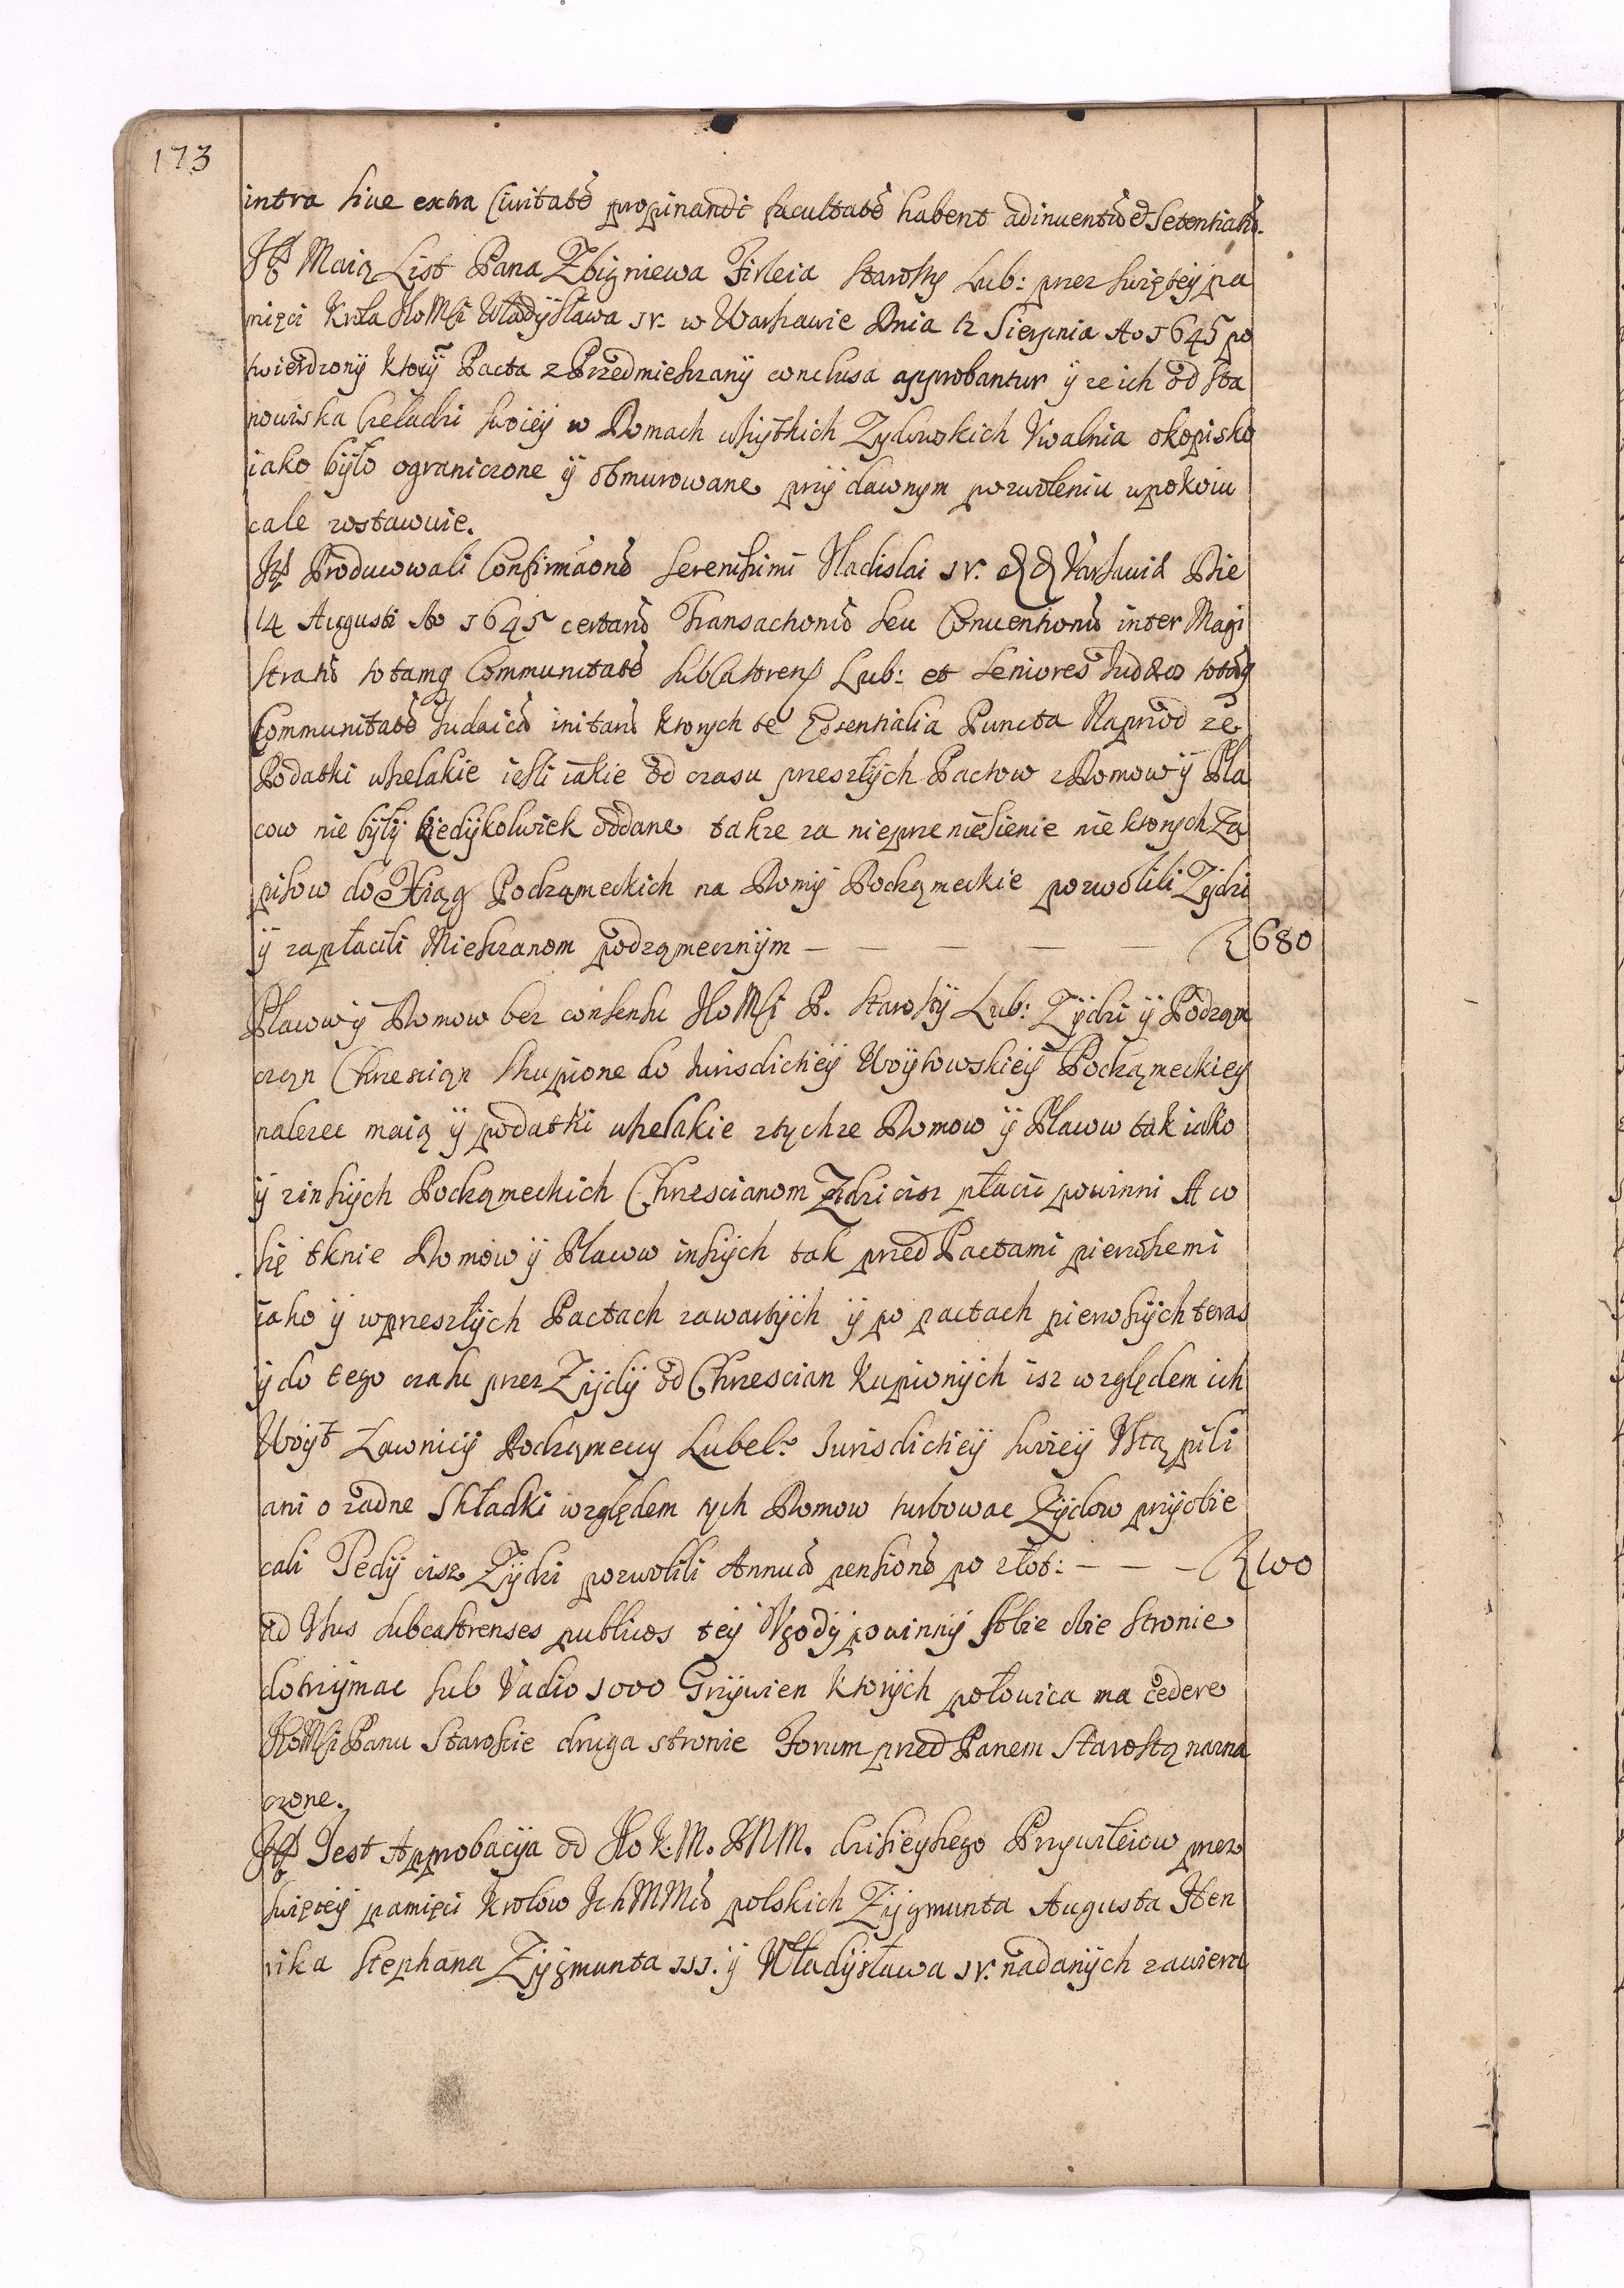 173
intra siue extra Ciuitatẽ propinandi facultatẽ habent adinuentũ et Setentiatũ.
Itẽ Maią List Pana Zbigniewa Firleia Starosty Lub: przez swiętey pa
mięci Krola JeoMsci Władysława IV. w Warszawie Dnia 12 Sierpnia Ao 1645 po
twierdzony ktorÿ Pacta z Przedmieszczany conclusa approbantur ÿ ze ich od Sta
nowiska Czeladzi swoiey w Domach wszytkich Zydowskich Vwalnia okopisko
iako było ograniczone ÿ obmurowane przÿ dawnym pozwoleniu wpokoiu
cale zostawuie.
Itẽ Producowali Confirmãonẽ Serenissimi Vladislai IV. dd Varsauiæ Die
14 Augusti Ao 1645 certarũ Transactionũ Seu Conuentionũ inter Magi
stratũ totamq Communitatẽ SubCastrensẽ Lub: et Seniores Iudæos totãq
Communitatẽ Iudaicã initarũ ktorych te Essentialia Puncta Naprzod ze
Podatki wszelakie iesli iakie od czasu przeszłÿch Pactow z Domow ÿ Pla
cow nie bÿłÿ kiedÿkolwiek oddane takze za nieprzeniesienie niektorych Za
pisow do Xiąg Podzameckich na Domÿ Podzameckie pozwolili Zÿdzi
ÿ zapłacili Mieszczanom podzamecznÿm — — — — — 680
Placow ÿ Domow bez consensu JeoMsci P. Starostÿ Lub: Zÿdzi ÿ Podzam
czan Chrzescian skupione do Iurisdictiey Woÿtowskieÿ Podzameckiey
nalezec maią ÿ podatki wszelakie z tychze Domow ÿ Placow tak iako
ÿ z inszÿch Podzameckich Chrzescianom Zÿdzi cisz płacic powinni A co
się tknie Domow ÿ Placow inszÿch tak przed Pactami pierwszemi
iako ÿ w przeszłÿch Pactach zawartÿch ÿ po pactach pierwszÿch teraz
ÿ do tego czasu przez Zÿdÿ od Chrzescian Kupionÿch isz względem ich
Woÿt Ławnicÿ Podzameccy Lubel: Iurisdictieÿ swoieÿ Vstąpili
ani o zadne Składki względem tych Domow turbowac Zÿdow przÿobie
cali Tedÿ cisz Zÿdzi pozwolili Annuã pensionẽ po złot: — — — 100
ad Vsus subcastrenses publicos teÿ Vgodÿ powinnÿ sobie obie stronie
dotrzÿmac sub Vadio 1000 Grzÿwien ktorÿch połowica ma cedere
JeoMsci Panu Staroscie druga stronie Forum przed Panem Starostą nazna
czone.
Itẽ Jest Approbacÿa od Jeo K. M. P N M. dzisieyszego Przywileiow przez
swięteÿ pamięci Krolow IchMMciũ polskich Zÿgmunta Augusta Hen
rika Stephana Zÿgmunta III. ÿ Władÿsława IV. nadanÿch zawiera